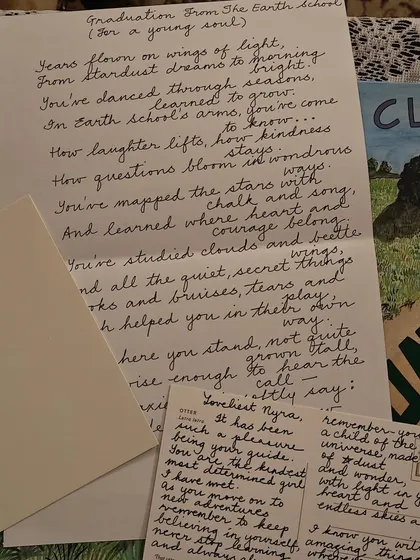 Graduation From The Earth School
(For a young soul)
Years flown on wings of light,
From stardust dreams to morning
bright.
You've danced through seasons,
learned to grow.
In Earth School's arms, you've come
to know...
How laughter lifts, how kindness
stays.
How questions bloom in wondrous
ways.
You've mapped the stars with
chalk and song,
And learned where heart and
courage belong.
You've studied clouds and beetle
wings,
nd all the quiet, secret things
oks and bruises, tears and
play,
h helped you in their own
way.
here you stand, not quite
grown tall,
ise enough to hear the
call —
ftly say:
CL
OTTER
Lutra lutra
Loveliest Nyra,
It has been
such a pleasure
being your guide.
You are the kindest
most determined girl
I have met.
As you move on to
new adventures
remember to keep
believing in yourself,
never stop learning
and always
remember you
a child of the
universe, made
of dust
and wonder,
with light in y
heart and
endless skies
I know you w
amazing thin